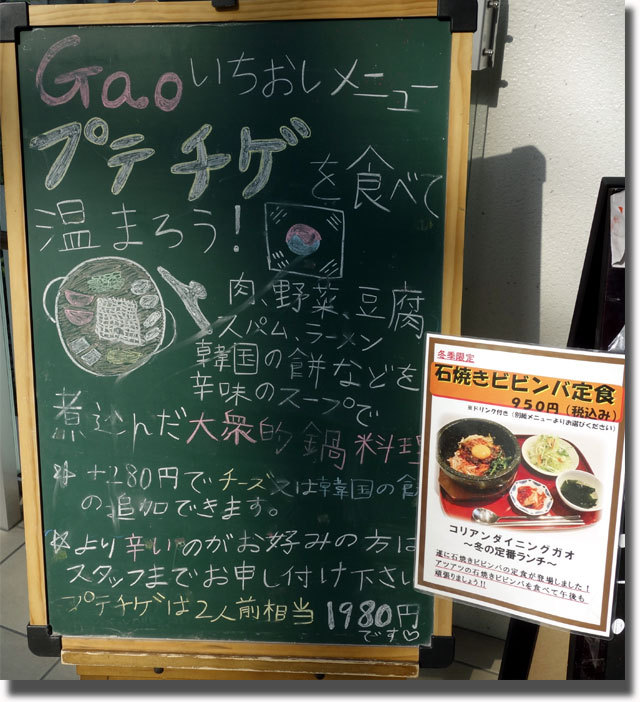 Gao いちおしメニュー
プテチゲを食べて
温まろう!
肉、野菜、豆腐
スパム、ラーメン
韓国の餅などを
辛味のスープで
煮込んだ大衆的鍋料理
+280円でチーズ又は韓国の
の追加できます。
より辛いのがお好みの方は
スタッフまでお申し付け下さい
プテチゲは2人前相当 1980円
です♡
冬季限定
石焼きビビンバ定食
950円(税込み)
※ドリンク付き(別紙メニューよりお選びください)
コリアンダイニングガオ
~冬の定番ランチ~
遂に石焼きビビンバの定食が登場しました!
アツアツの石焼きビビンバを食べて午後も
頑張りましょう!!